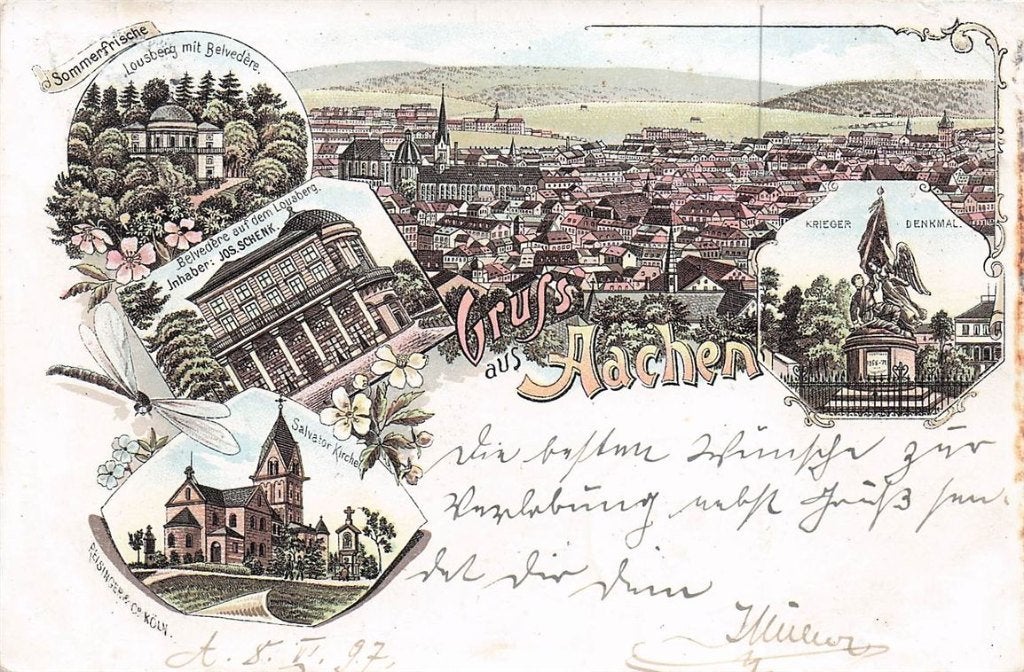 Sommerfrische
Lousberg mit Belvedère.
Belvedère auf dem Lousberg.
Inhaber: JOS. SCHENK.
KRIEGER DENKMAL.
Gruss
aus Aachen
Salvator Kirche
REISINGER & Co KÖLN.
Die besten Wünsche zur
Verlobung nebst Gruß sen-
det Dir Dein
Müller
A. 8. VI. 97.